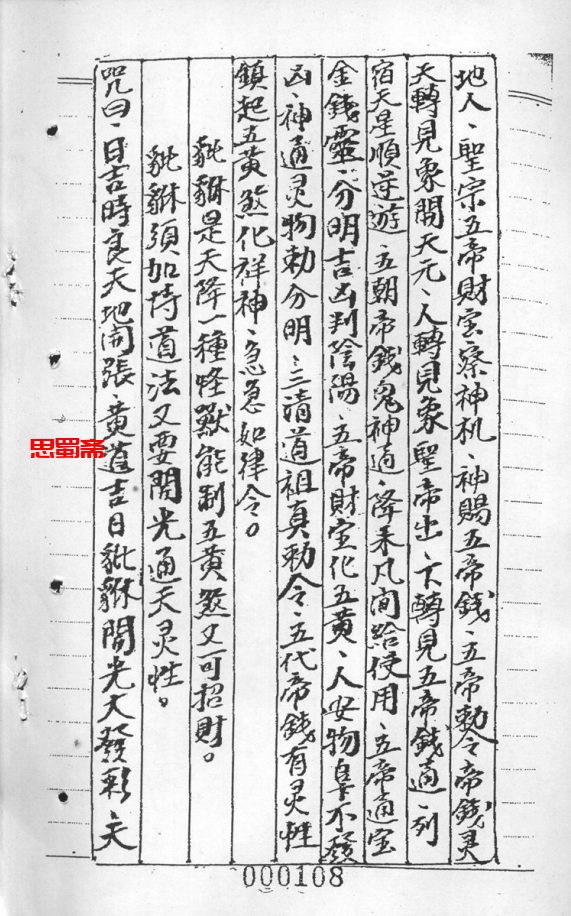 地人、聖宗五帝財宝察神机、神賜五帝錢、五帝勅令帝錢灵
天轉見象開天元、人轉見象聖帝出、下轉見五帝錢通、列
宿天星順逆遊、五朝帝錢鬼神通、降来凡间給使用、五帝通宝
金錢靈、分明吉凶判陰陽、五帝財宝化五黃、人安物阜不發
凶、神通灵物勅分明、三清道祖真勅令、五代帝錢有灵性
鎮起五黃煞化祥神、急急如律令。
豼貅是天降一種怪獸能制五黃煞又可招財。
豼貅須加持道法又要開光通天灵性。
咒曰、日吉時良天地開張、黃道吉日豼貅開光大發彩、天
思蜀斋
000108